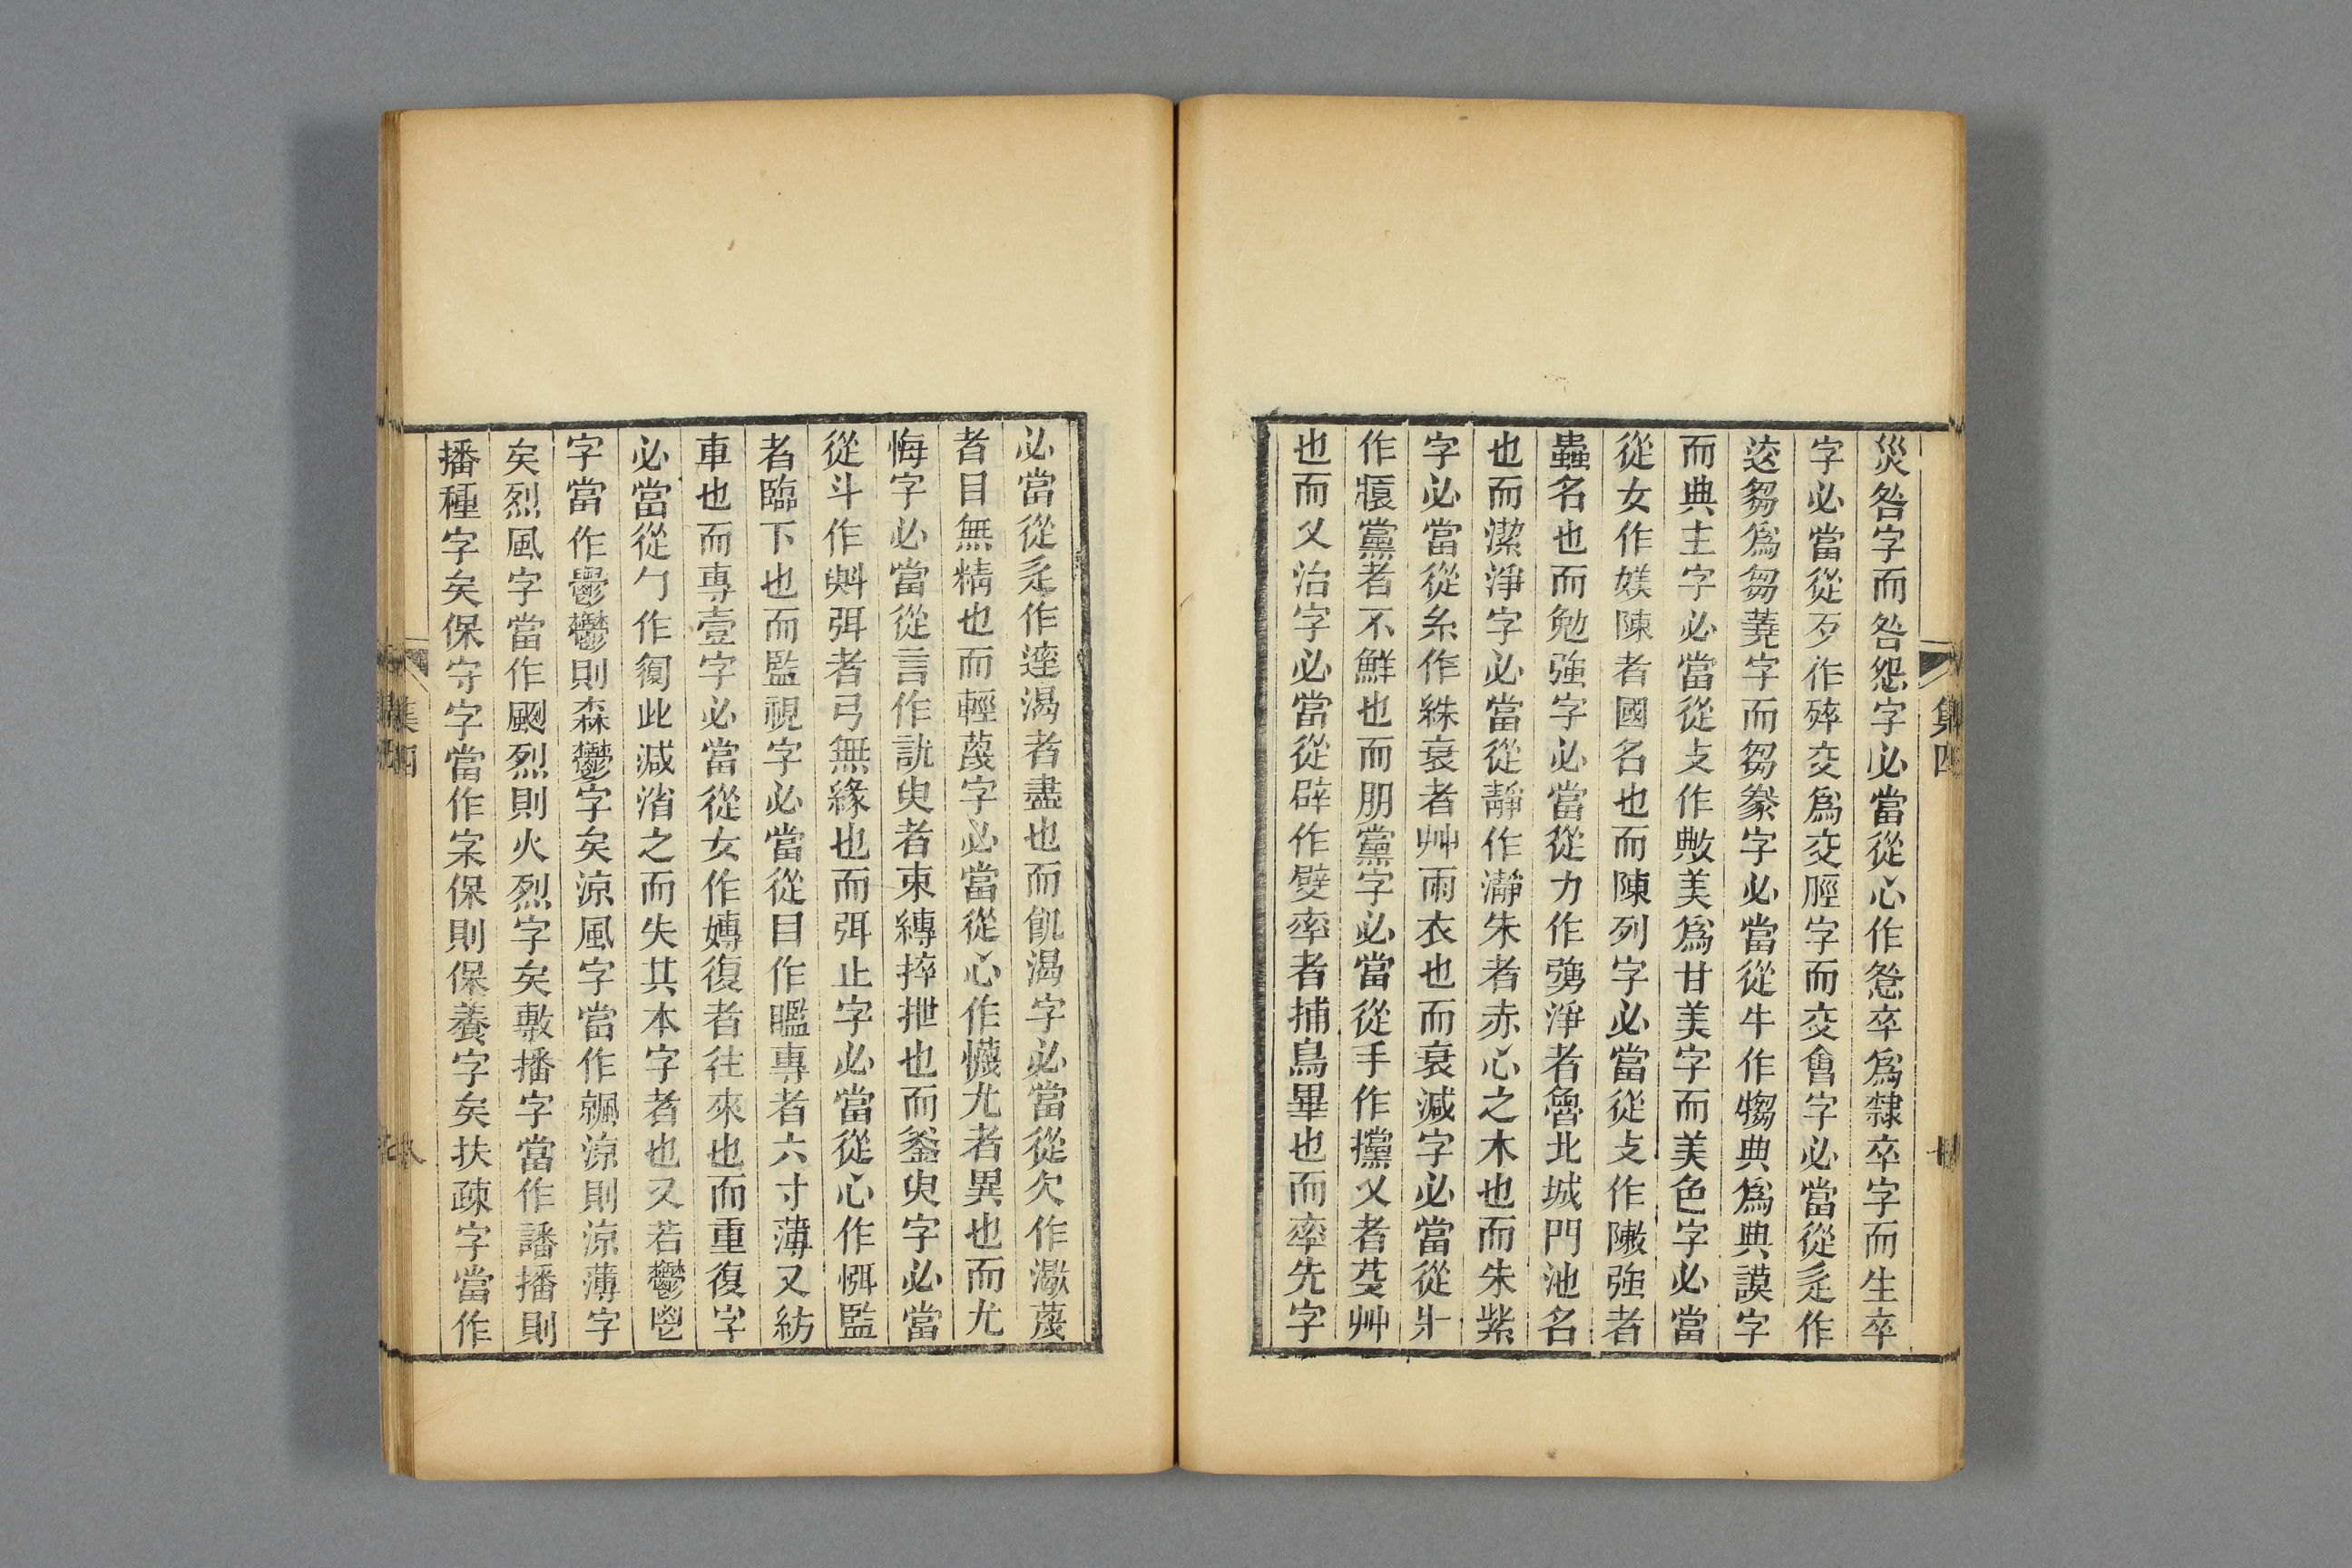 災咎字而咎怨字必當從心作惫卒爲隸卒字而生卒
字必當從歹作碎交爲交脛字而交會字必當從辵作
这芻爲芻蕘字而芻豢字必當從牛作犓典爲典謨字
而典主字必當從攴作敟美爲甘美字而美色字必當
從女作媄陳者國名也而陳列字必當從攴作敶強者
蟲名也而勉強字必當從力作勥淨者魯北城門池名
也而潔淨字必當從靜作瀞朱者赤心之木也而朱紫
字必當從糸作絑衰者艸雨衣也而衰減字必當從爿
作𤸬黨者不鮮也而朋黨字必當從手作攩乂者芟艸
也而乂治字必當從辟作嬖率者捕鳥畢也而率先字
集四
必當從辵作達渴者盡也而飢渴字必當從欠作㵣蔑
者目無精也而輕蔑字必當從心作懱尤者異也而尤
悔字必當從言作訧臾者束縛捽抴也而釜臾字必當
從斗作斞弭者弓無緣也而弭止字必當從心作㥝監
者臨下也而監視字必當從目作䁦專者六寸薄又紡
車也而專壹字必當從女作嫥復者往來也而重復字
必當從勹作𠣸此減消之而失其本字者也又若鬱鬯
字當作鬱鬱則森鬱字矣涼風字當作飆涼則涼薄字
矣烈風字當作颲烈則火烈字矣敷播字當作譒播則
播種字矣保守字當作宲保則保養字矣扶疎字當作
集四